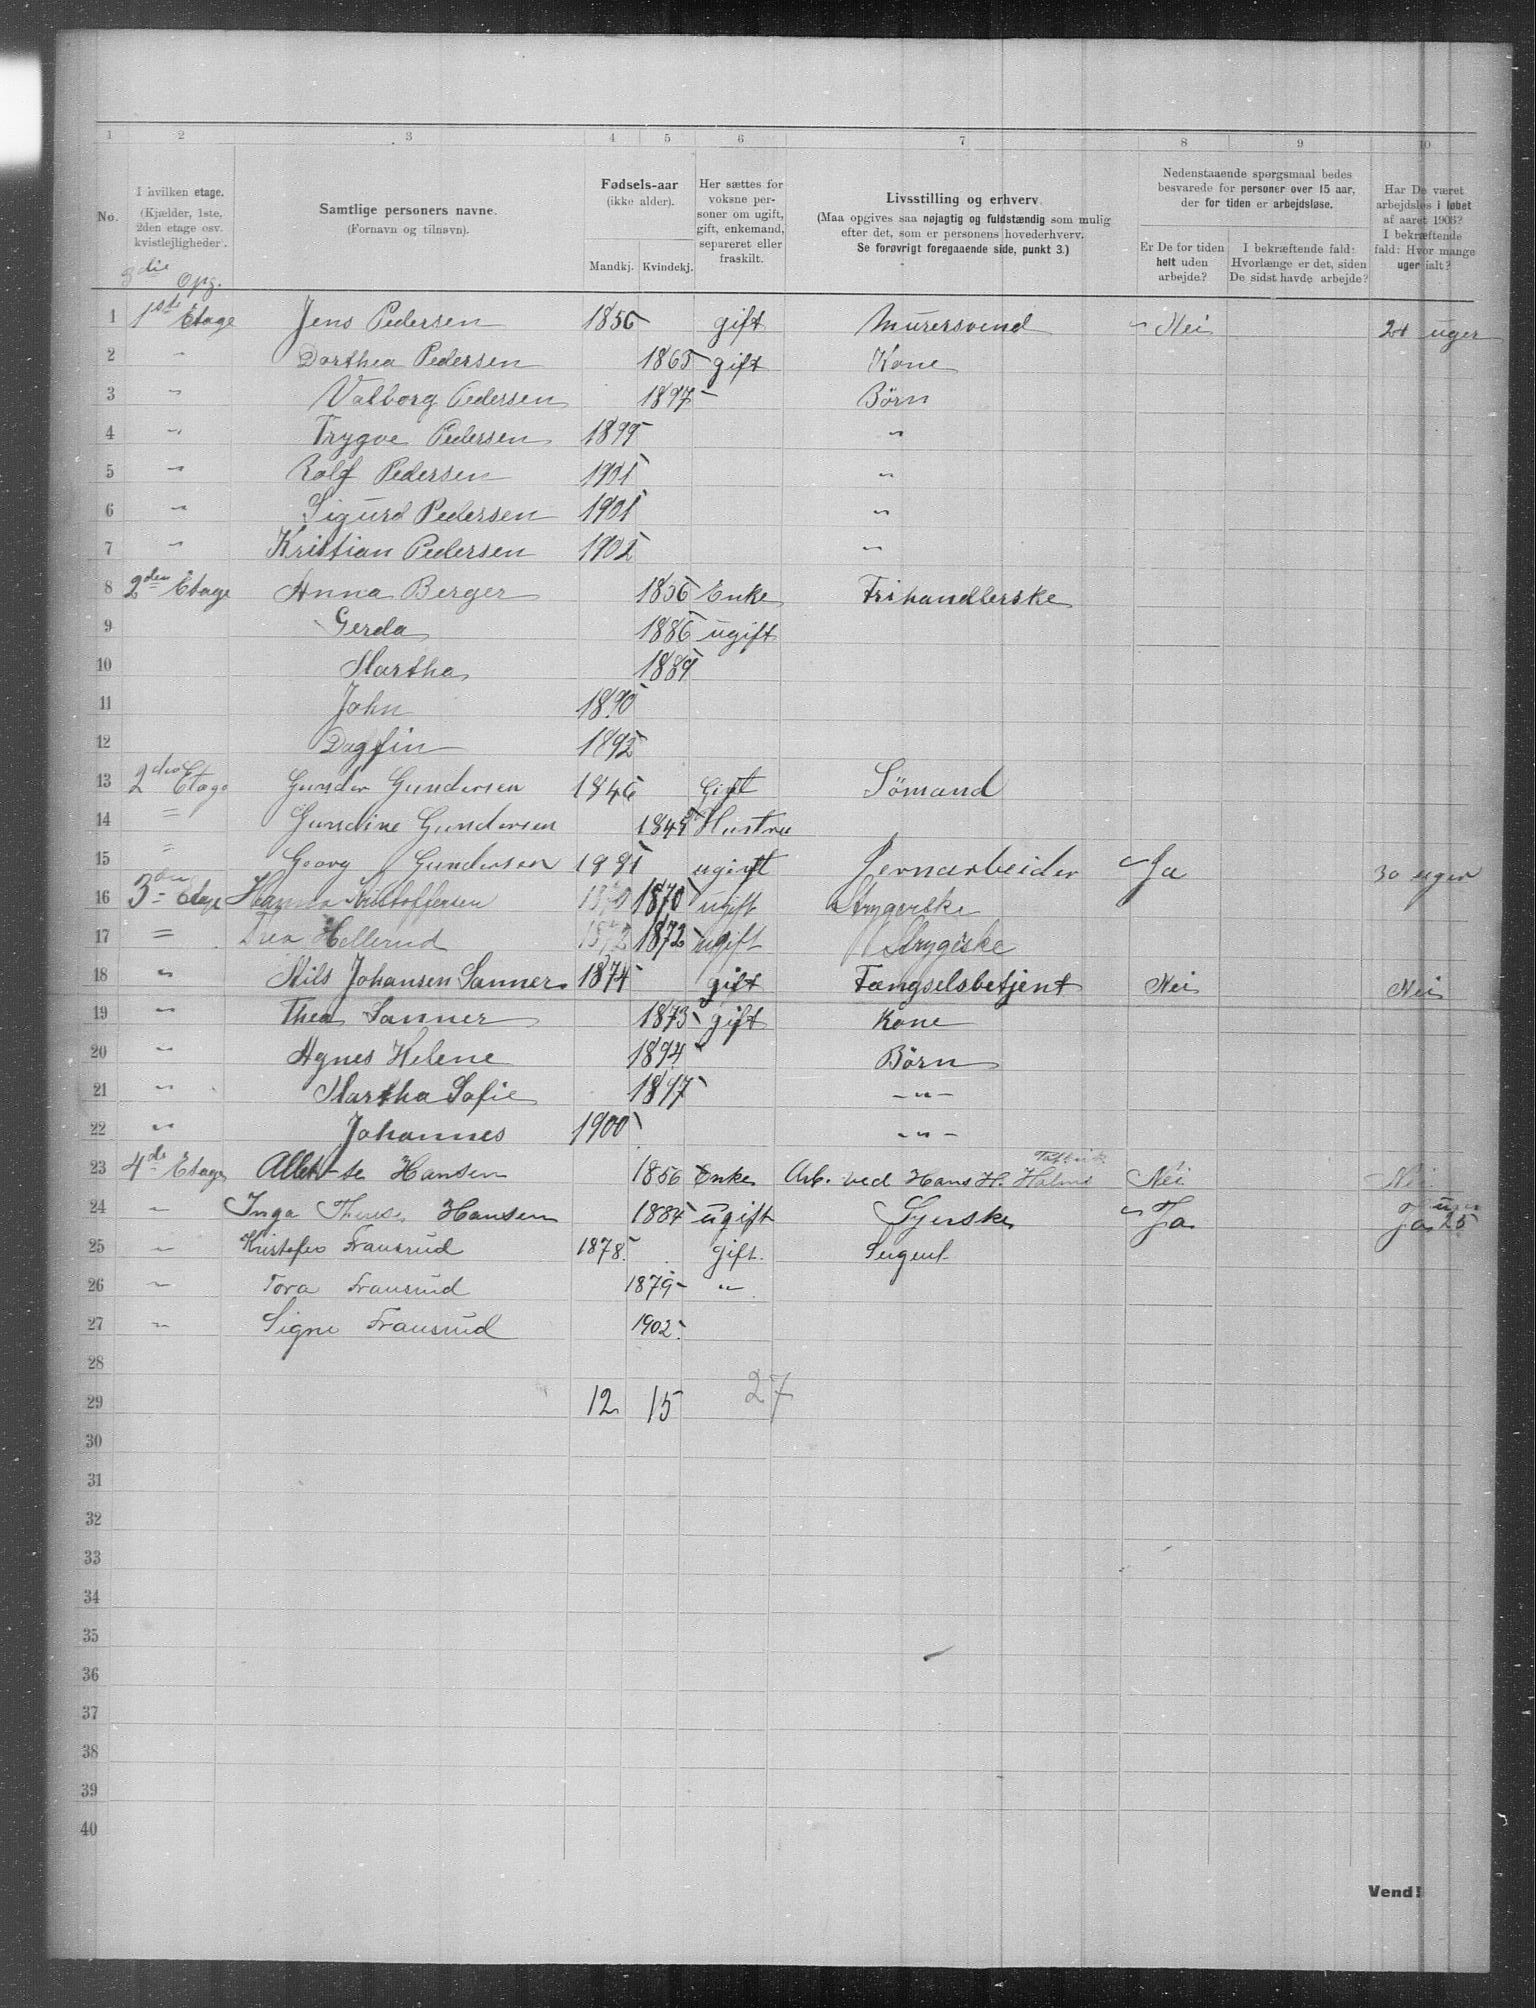 1 2 3 4 5 6 7 8 9 10
No.
I hvilken etage.
(Kjælder, 1ste, 2den etage osv. kvistlejligheder.
Samtlige personers navne.
(Fornavn og tilnavn).
Fødsels-aar
(ikke alder).
Mandkj. Kvindekj.
Her sættes for voksne personer om ugift, gift, enkemand, separeret eller fraskilt.
Livsstilling og erhverv.
(Maa opgives saa nøjagtig og fuldstændig som mulig efter det, som er personens hovederhverv.
Se forøvrigt foregaaende side, punkt 3.)
Nedenstaaende spørgsmaal bedes besvarede for personer over 15 aar, der for tiden er arbejdsløse.
Er De for tiden helt uden arbejde?
I bekræftende fald: Hvorlænge er det, siden De sidst havde arbejde?
Har De været arbejdsløs i løbet af aaret 1903? I bekræftende fald: Hvor mange uger ialt?
3die Opg.
1 1ste Etage Jens Pedersen 1856 gift Murersvend Nei 24 uger
2 " Dorthea Pedersen 1865 gift Kone
3 " Valborg Pedersen 1897 - Børn
4 " Trygve Pedersen 1899 "
5 " Rolf Pedersen 1901 "
6 " Sigurd Pedersen 1901 "
7 " Kristian Pedersen 1902 "
8 2den Etage Anna Berger 1856 Enke Frihandlerske
9 Gerda 1886 ugift
10 Martha 1889
11 John 1890
12 Dagfin 1892
13 2den Etage Gunder Gundersen 1846 Gift Sømand
14 " Gundine Gundersen 1845 Hustru
15 " Georg Gundersen 1881 ugift Jernarbeider Ja 30 uger
16 3die Etage Hanna Kristoffersen 1870 1870 ugift Strygerske
17 " Thea Hellerud 1872 1872 ugift Strygeske
18 " Nils Johansen Sanner 1874 gift Fængselsbetjent Nei Nei
19 " Thea Sanner 1873 gift Kone
20 " Agnes Helene 1894 Børn
21 " Martha Sofie 1897 - " -
22 " Johannes 1900 - " -
23 4de Etage Hansen 1856 Enke Arb. ved Hans H. Holms Nei Nei
24 " Inga Therese Hansen 1884 ugift Syerske Ja Ja 25 uger
25 " Kristofer Fransrud 1878. gift.
26 " Tora Fransrud 1879 "
27 " Signe Fransrud 1902.
28
29 12 15 27
30
31
32
33
34
35
36
37
38
39
40
Vend!